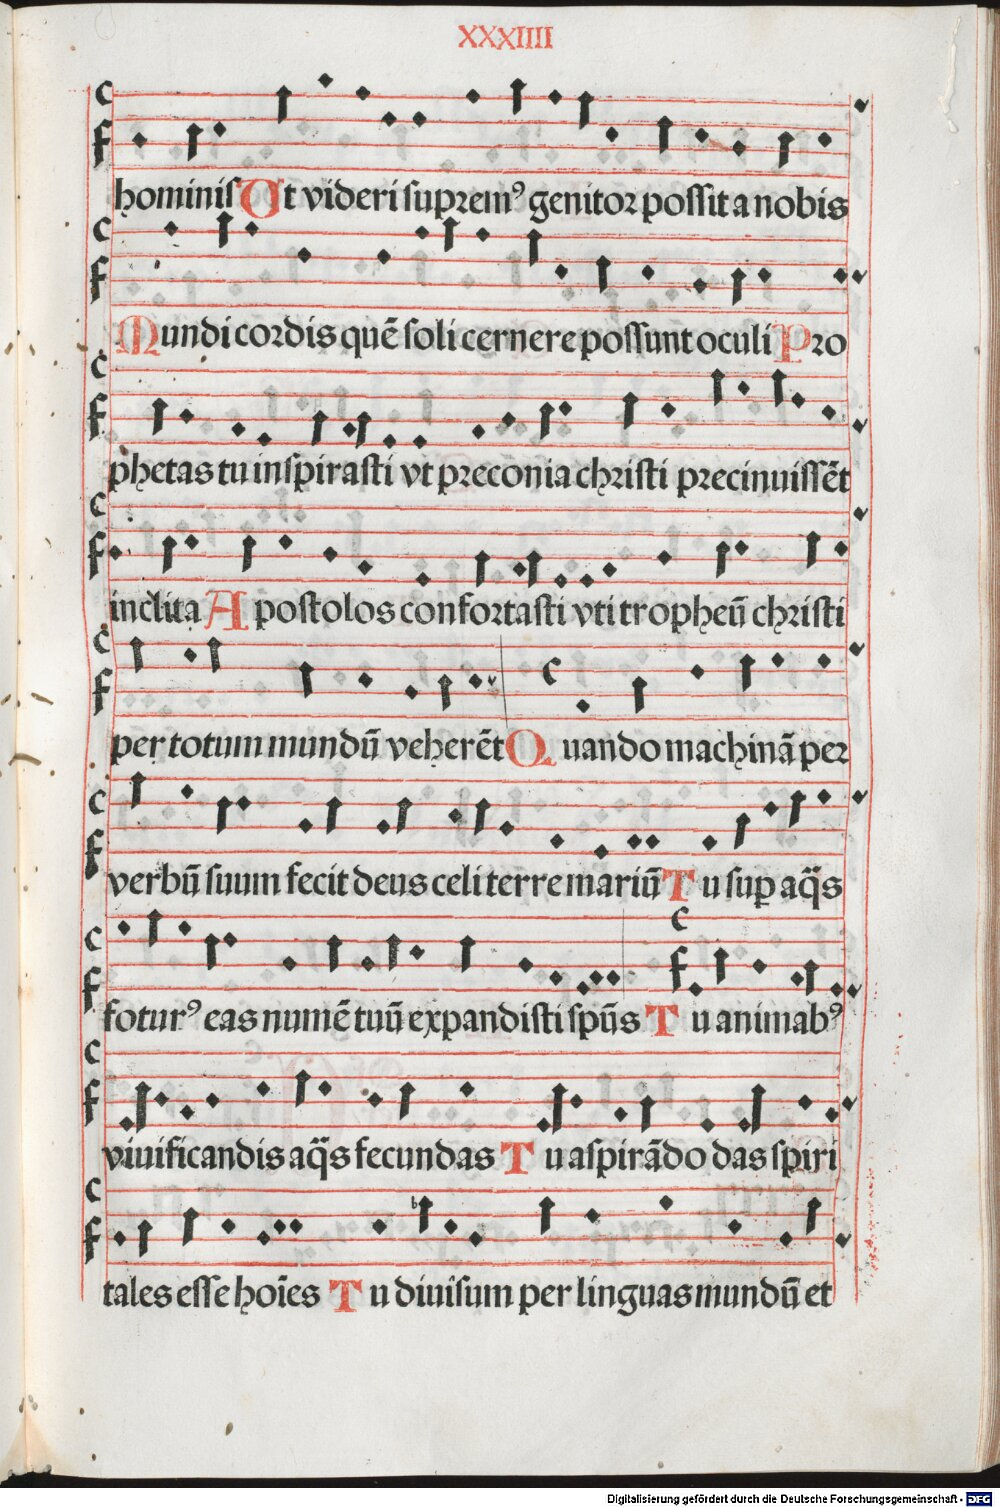 XXXIIII
hominis Ut videri suprem⁹ genitor possit a nobis
Mundi cordis quē soli cernere possunt oculi Pro
phetas tu inspirasti vt preconia christi precinuissēt
inclita Apostolos confortasti vti tropheū christi
per totum mundū veherēt Quando machinā per
verbū suum fecit deus celi terre mariū Tu sup aq̄s
fotur⁹ eas numē tuū expandisti spūs Tu animab⁹
viuificandis aq̄s fecundas Tu aspirādo das spiri
tales esse hoīes Tu diuisum per linguas mundū et
Digitalisierung gefördert durch die Deutsche Forschungsgemeinschaft - DFG